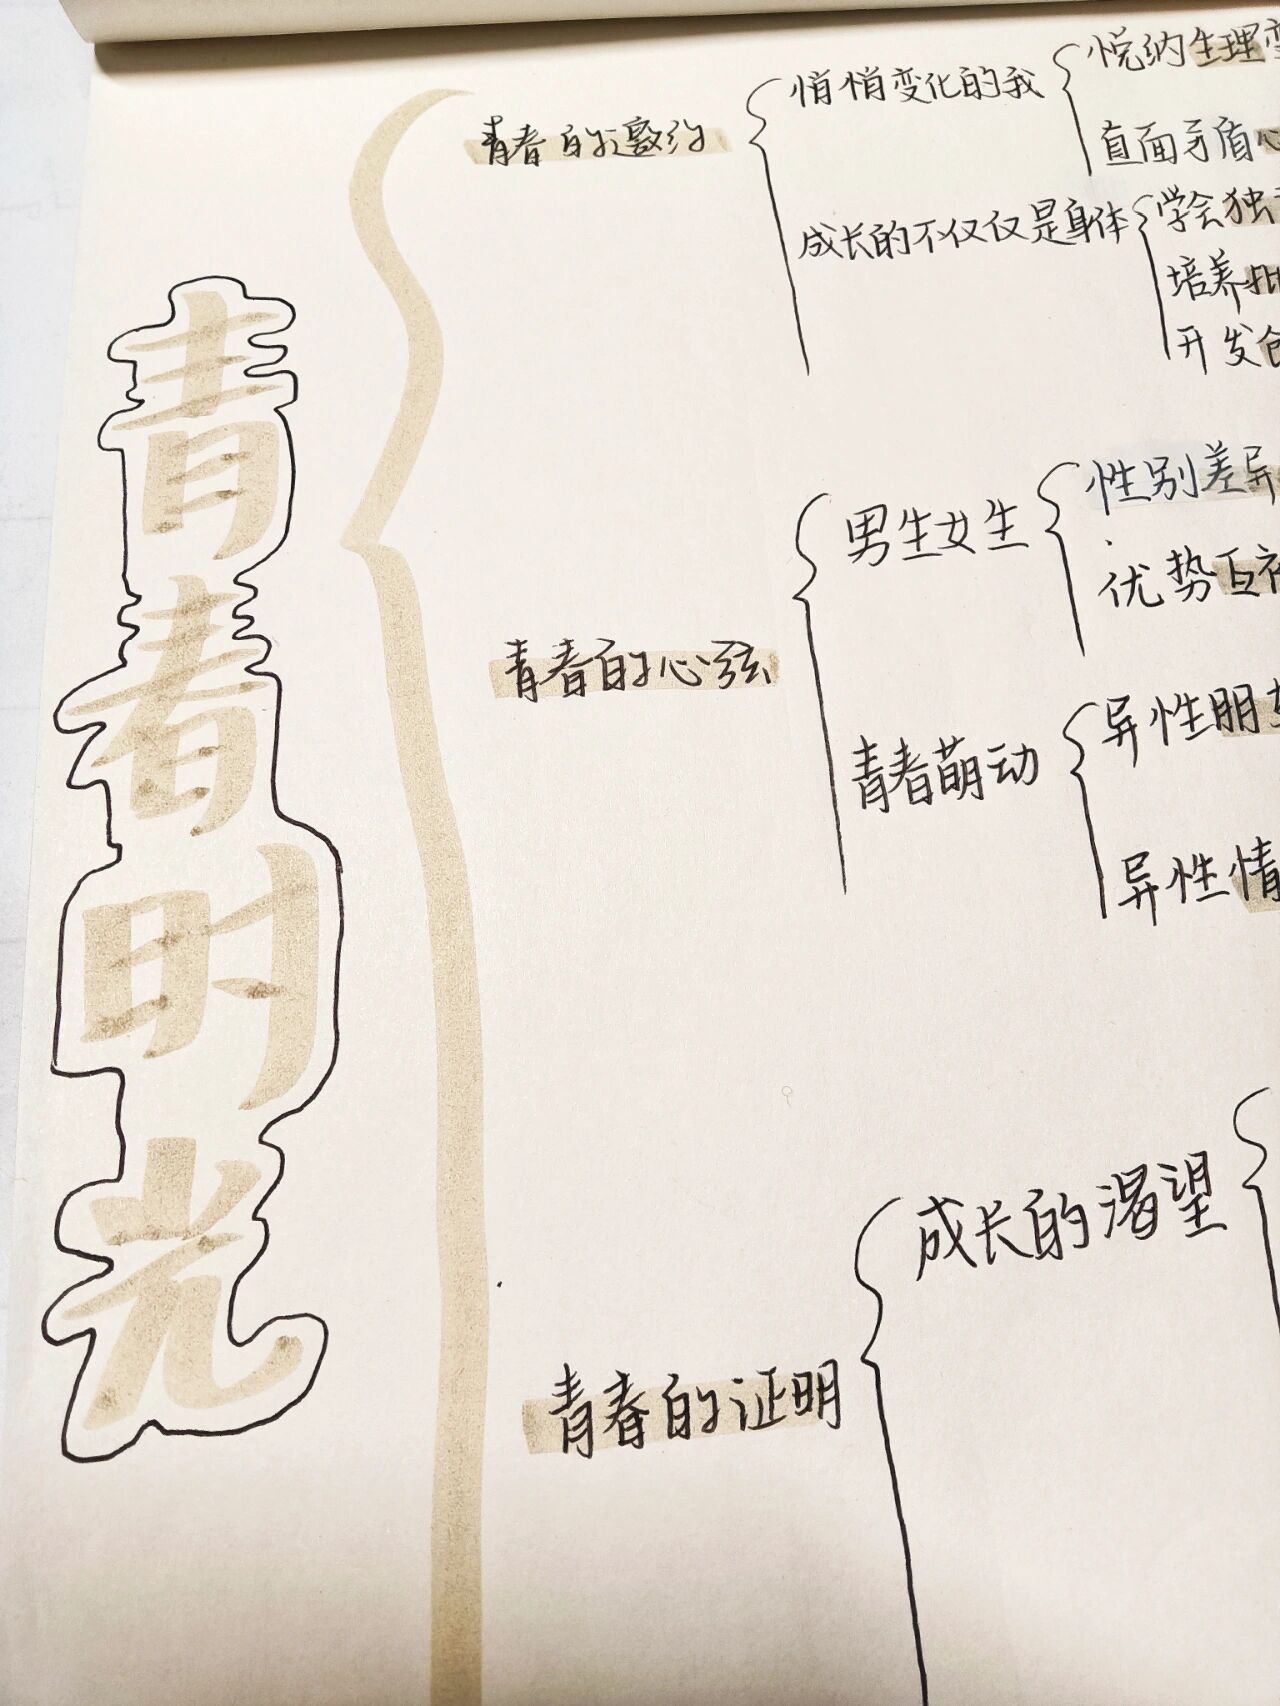 青春时光
青春的邀约
悄悄变化的我
悦纳生理
直面矛盾心
成长的不仅仅是身体
学会独
培养
开发
青春的心弦
男生女生
性别差异
优势互
青春萌动
异性朋
异性情
青春的证明
成长的渴望